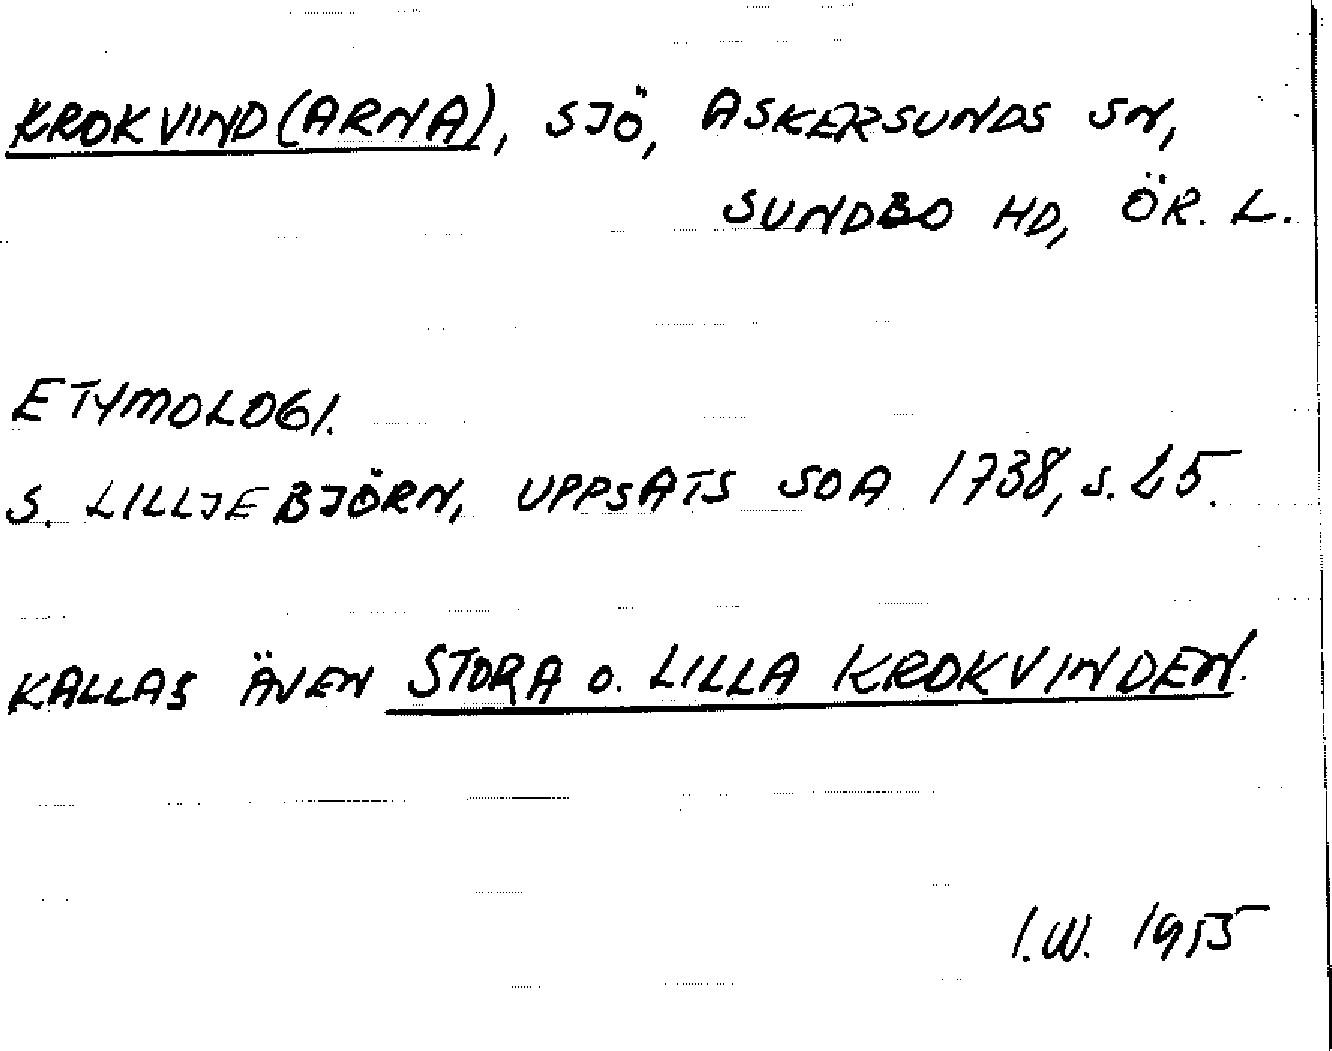 KROKVIND(ARNA), SJÖ, ASKERSUNDS SN,
SUNDBO HD, ÖR. L.
ETYMOLOGI.
S. LILLJEBJÖRN, UPPSATS SOA 1738, s. 25.
KALLAS ÄVEN STORA o. LILLA KROKVINDEN.
I.W. 1955